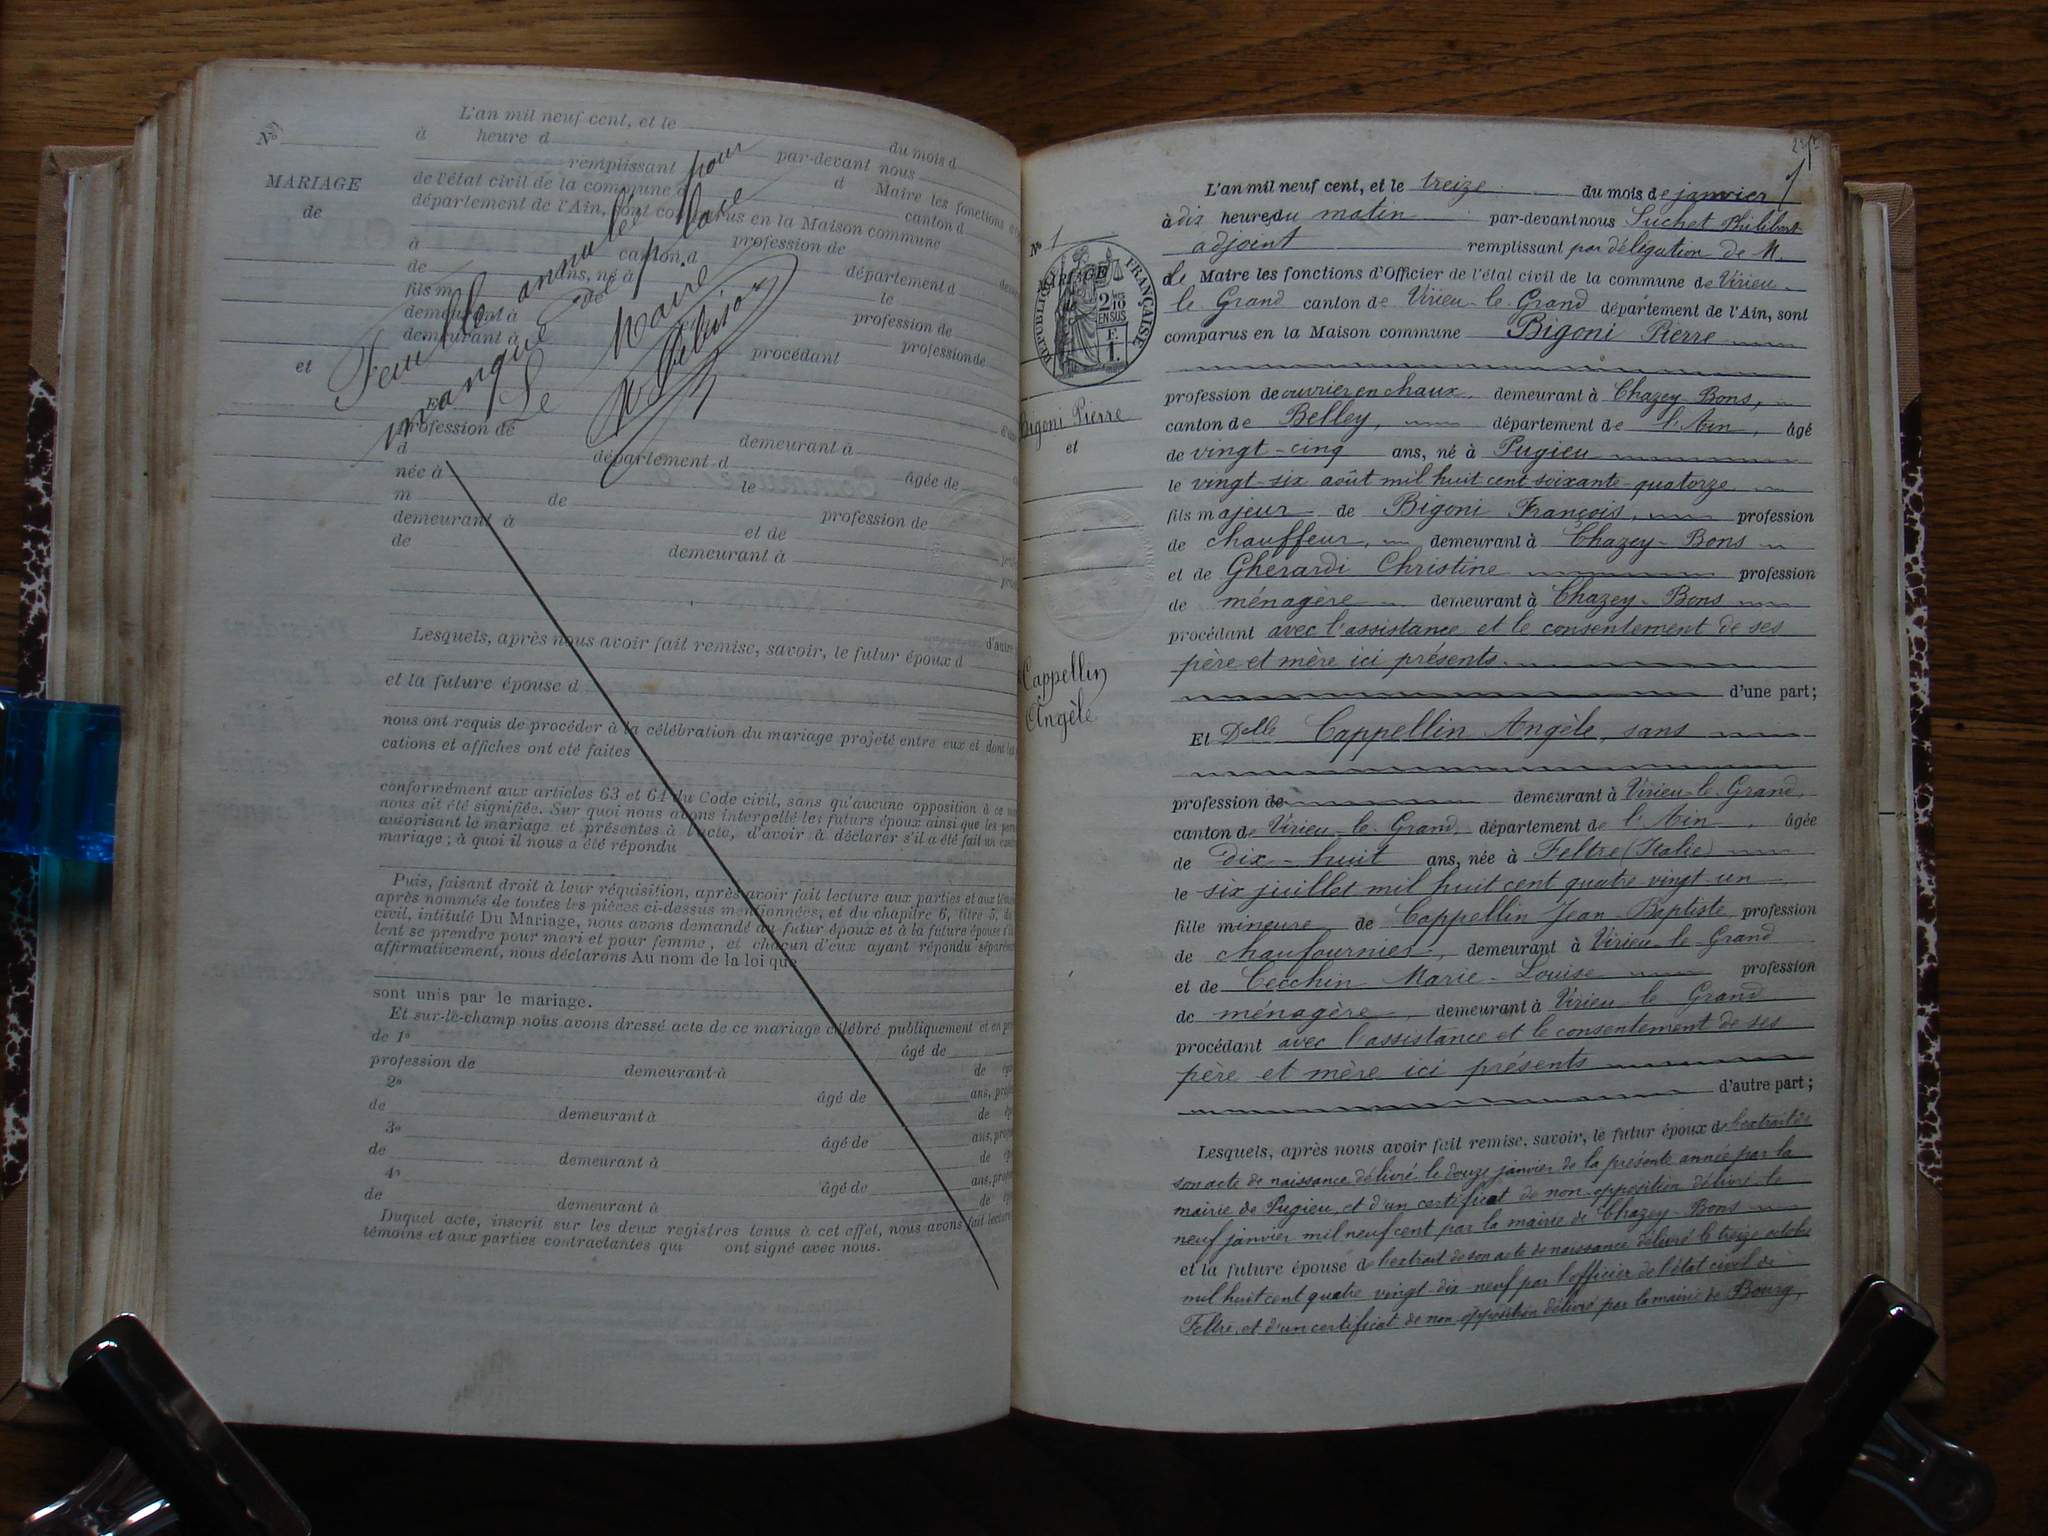 No
MARIAGE
de
et
L'an mil neuf cent, et le du mois d
à heure d par-devant nous
remplissant d Maire les fonctions
de l'état civil de la commune d canton d
département de l'Ain, sont comparus en la Maison commune
profession de
à canton d département d
de ans, né à le
fils m profession de
demeurant à profession de
demeurant à procédant
Feuille annulée pour
manque de place
Le Maire
Et
profession de demeurant à
d département d âgée de
née à le
m de profession de
demeurant à et de
de demeurant à
Lesquels, après nous avoir fait remise, savoir, le futur époux d
et la future épouse d
nous ont requis de procéder à la célébration du mariage projeté entre eux et dont les
cations et affiches ont été faites
conformément aux articles 63 et 64 du Code civil, sans qu'aucune opposition à ce
nous ait été signifiée. Sur quoi nous avons interpellé les futurs époux ainsi que les
autorisant le mariage et présentes à l'acte, d'avoir à déclarer s'il a été fait un
mariage ; à quoi il nous a été répondu
Puis, faisant droit à leur réquisition, après avoir fait lecture aux parties et aux
après nommés de toutes les pièces ci-dessus mentionnées, et du chapitre 6, titre 5, du
civil, intitulé Du Mariage, nous avons demandé au futur époux et à la future épouse
lent se prendre pour mari et pour femme, et chacun d'eux ayant répondu
affirmativement, nous déclarons Au nom de la loi que
sont unis par le mariage.
Et sur-le-champ nous avons dressé acte de ce mariage célébré publiquement et en
de 1° âgé de
profession de demeurant à de
2° âgé de ans,
de demeurant à de
3° âgé de ans,
de demeurant à de
4° âgé de ans,
de demeurant à de
Duquel acte, inscrit sur les deux registres tenus à cet effet, nous avons fait lecture
témoins et aux parties contractantes qui ont signé avec nous.
No 1
MARIAGE
de
RÉPUBLIQUE FRANÇAISE
2/10 EN SUS
F. 1.
Bigoni Pierre
et
Cappellin
Angèle
L'an mil neuf cent, et le treize du mois de janvier
à dix heures du matin par-devant nous Suchet Philibert
adjoint remplissant par délégation de M.
le Maire les fonctions d'Officier de l'état civil de la commune de Virieu-
le Grand canton de Virieu-le-Grand département de l'Ain, sont
comparus en la Maison commune Bigoni Pierre
profession de ouvrier en chaux, demeurant à Chazey-Bons,
canton de Belley, département de l'Ain, âgé
de vingt-cinq ans, né à Pugieu
le vingt-six août mil huit cent soixante-quatorze
fils majeur de Bigoni François, profession
de chauffeur, demeurant à Chazey-Bons
et de Gherardi Christine profession
de ménagère demeurant à Chazey-Bons
procédant avec l'assistance et le consentement de ses
père et mère ici présents.
d'une part;
Et Delle Cappellin Angèle, sans
profession de demeurant à Virieu-le-Grand,
canton de Virieu-le-Grand département de l'Ain, âgée
de dix-huit ans, née à Feltre (Italie)
le six juillet mil huit cent quatre vingt un
fille mineure de Cappellin Jean-Baptiste profession
de chaufournier, demeurant à Virieu-le Grand
et de Cecchin Marie-Louise profession
de ménagère, demeurant à Virieu le Grand
procédant avec l'assistance et le consentement de ses
père et mère ici présents
d'autre part;
Lesquels, après nous avoir fait remise, savoir, le futur époux de l'extrait de
son acte de naissance délivré le douze janvier de la présente année par la
mairie de Pugieu, et d'un certificat de non opposition délivré le
neuf janvier mil neuf cent par la mairie de Chazey-Bons
et la future épouse de l'extrait de son acte de naissance délivré le treize octobre
mil huit cent quatre vingt-dix neuf par l'officier de l'état civil de
Feltre, et d'un certificat de non opposition délivré par la mairie de Bourg,